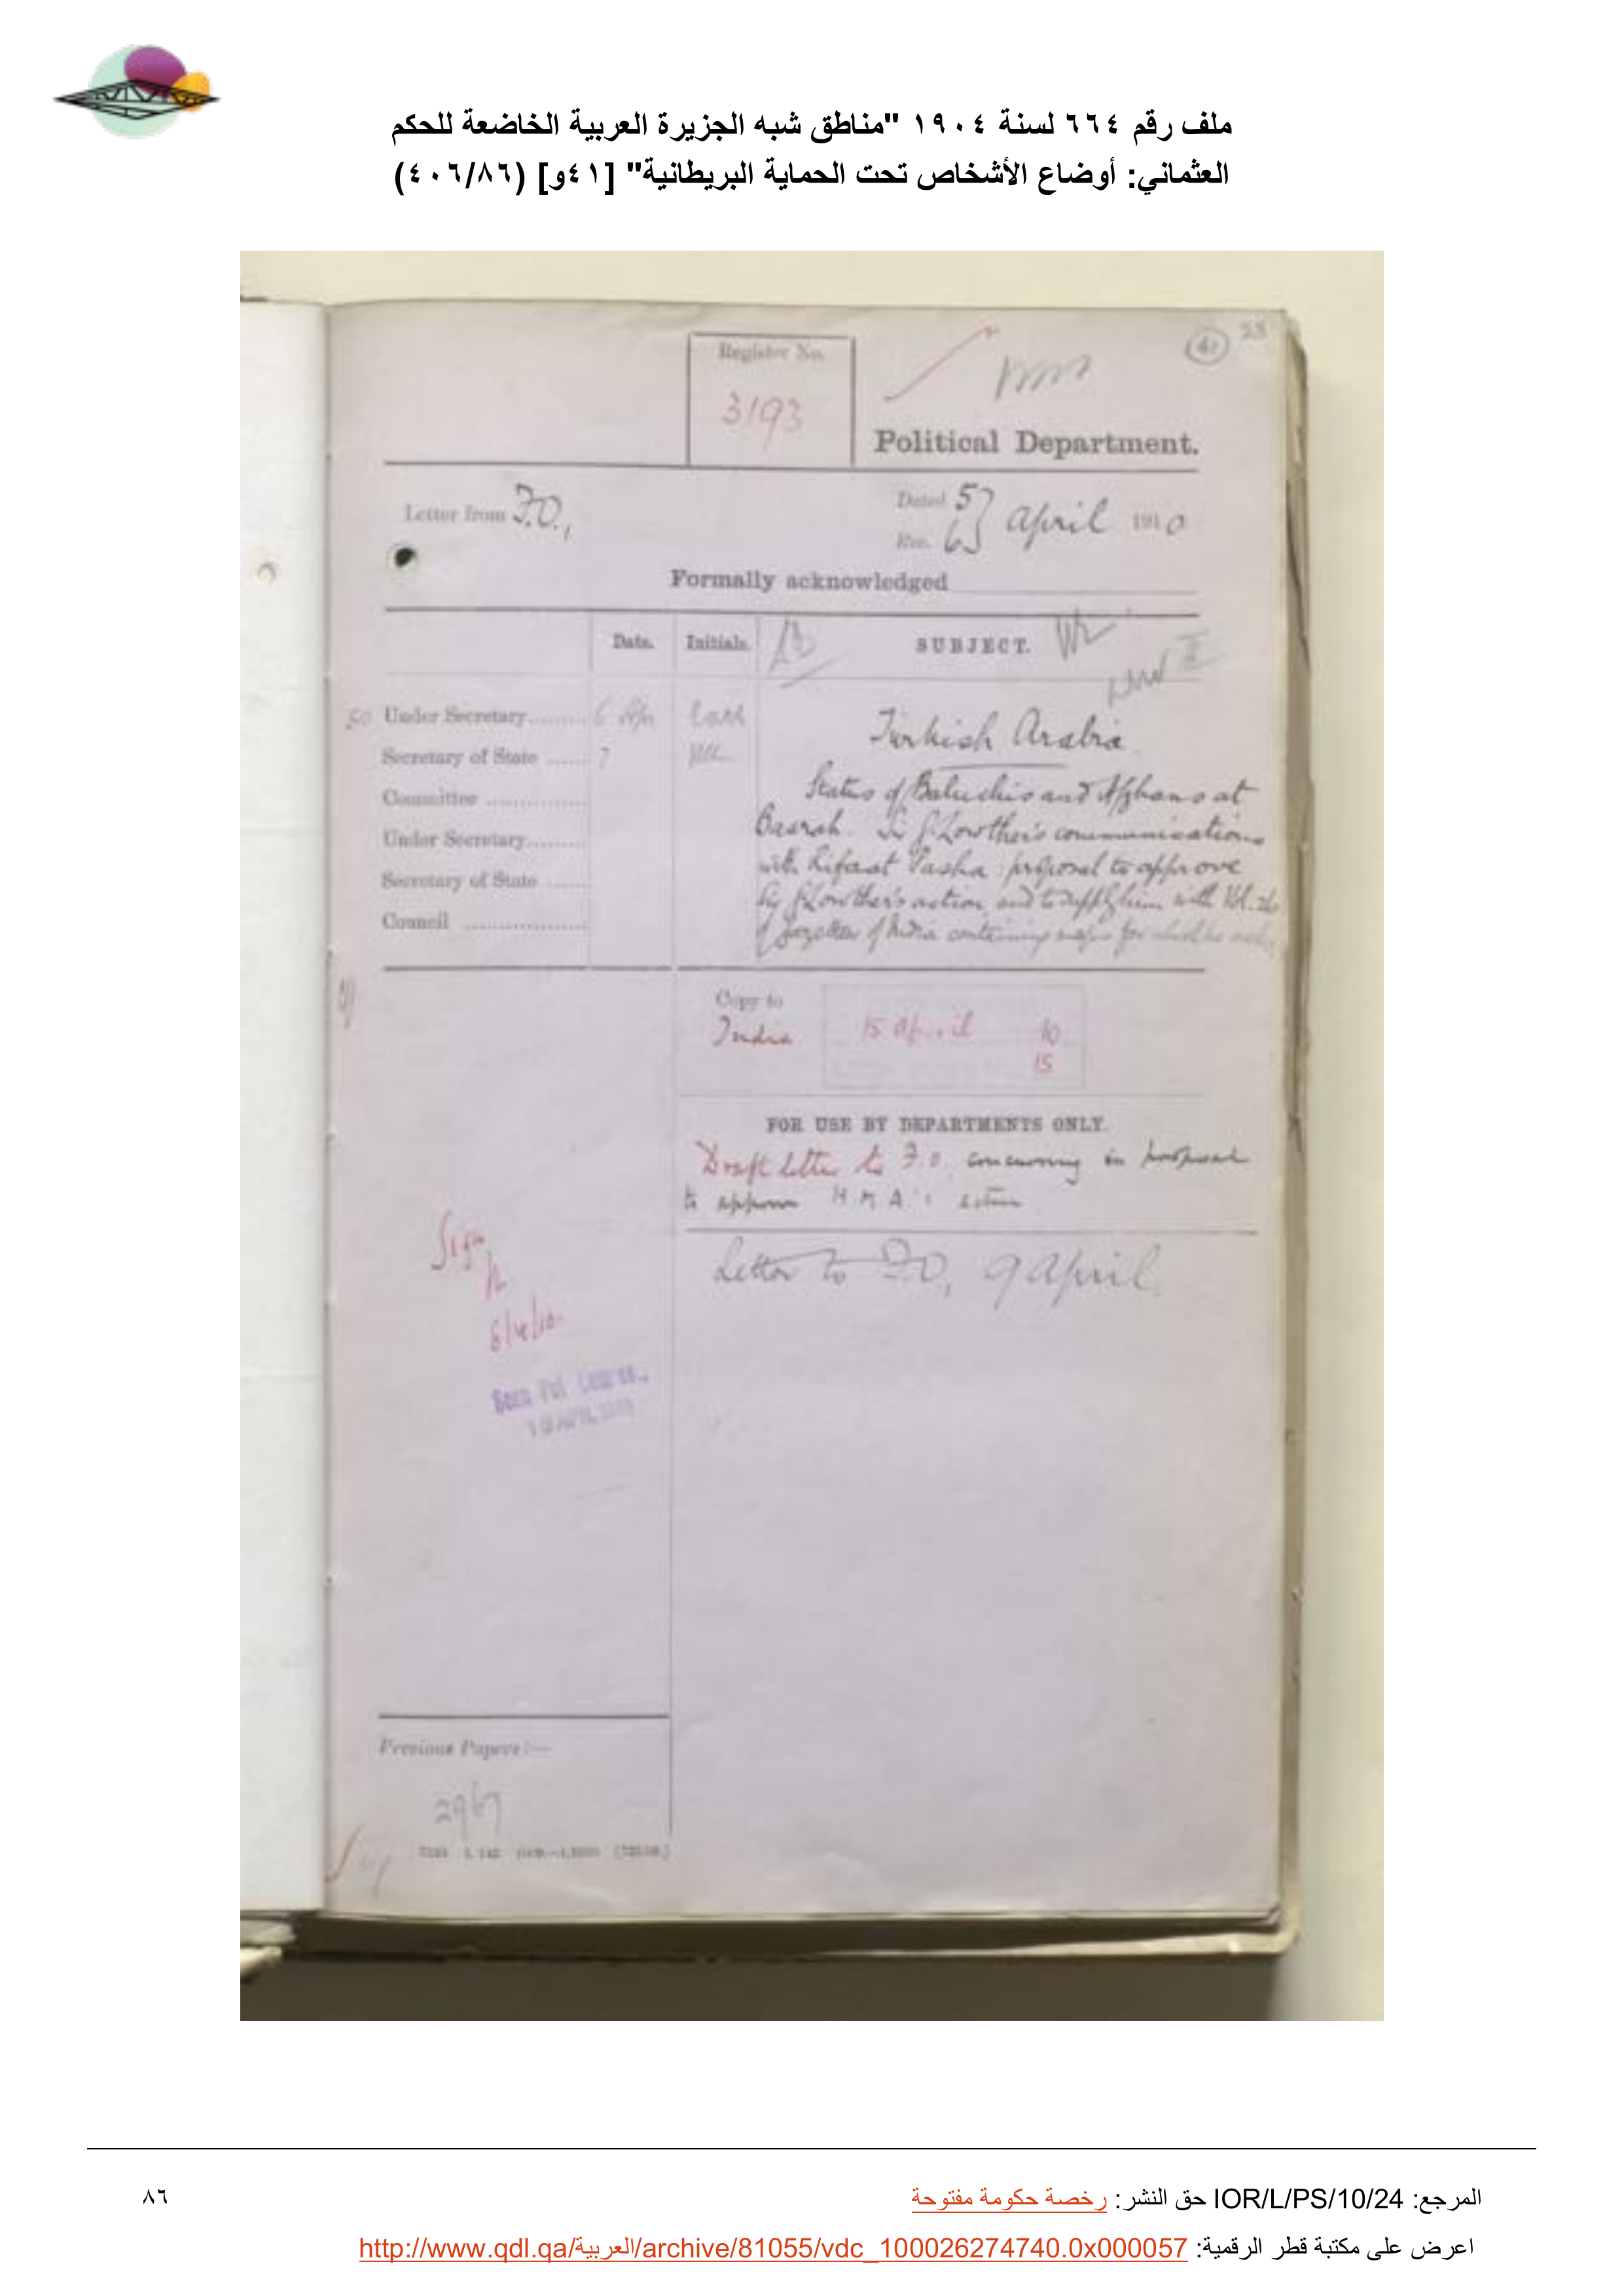 ملف رقم ٦٦٤ لسنة ١٩٠٤ "مناطق شبه الجزيرة العربية الخاضعة للحكم
العثماني: أوضاع الأشخاص تحت الحماية البريطانية" [٤١و] (٤٠٦/٨٦)
41
Register No.
3193
Political Department.
Letter from F.O.,
Dated 5
Rec. 6
April 1910
Formally acknowledged
Date. Initials. SUBJECT.
Under Secretary......... 6 Apr
Secretary of State ...... 7
Committee ...............
Under Secretary.........
Secretary of State ......
Council ..................
Turkish Arabia
Status of Baluchis and Afghans at
Basrah. Sir G. Lowther's communications
with Rifaat Pasha: proposal to approve
Sir G. Lowther's action, and to supply him with Vol. 26
of Gazetteer of India containing maps for which he asks.
Copy to
India 15 April 10
15
FOR USE BY DEPARTMENTS ONLY.
Draft letter to F.O. concurring in proposal
to approve H.M.A.'s action
Letter to F.O., 9 April
Sign
6/4/10
Seen Pol. Comtee.,
Previous Papers:—
2967
المرجع: IOR/L/PS/10/24 حق النشر: رخصة حكومة مفتوحة
٨٦
اعرض على مكتبة قطر الرقمية: http://www.qdl.qa/العربية/archive/81055/vdc_100026274740.0x000057